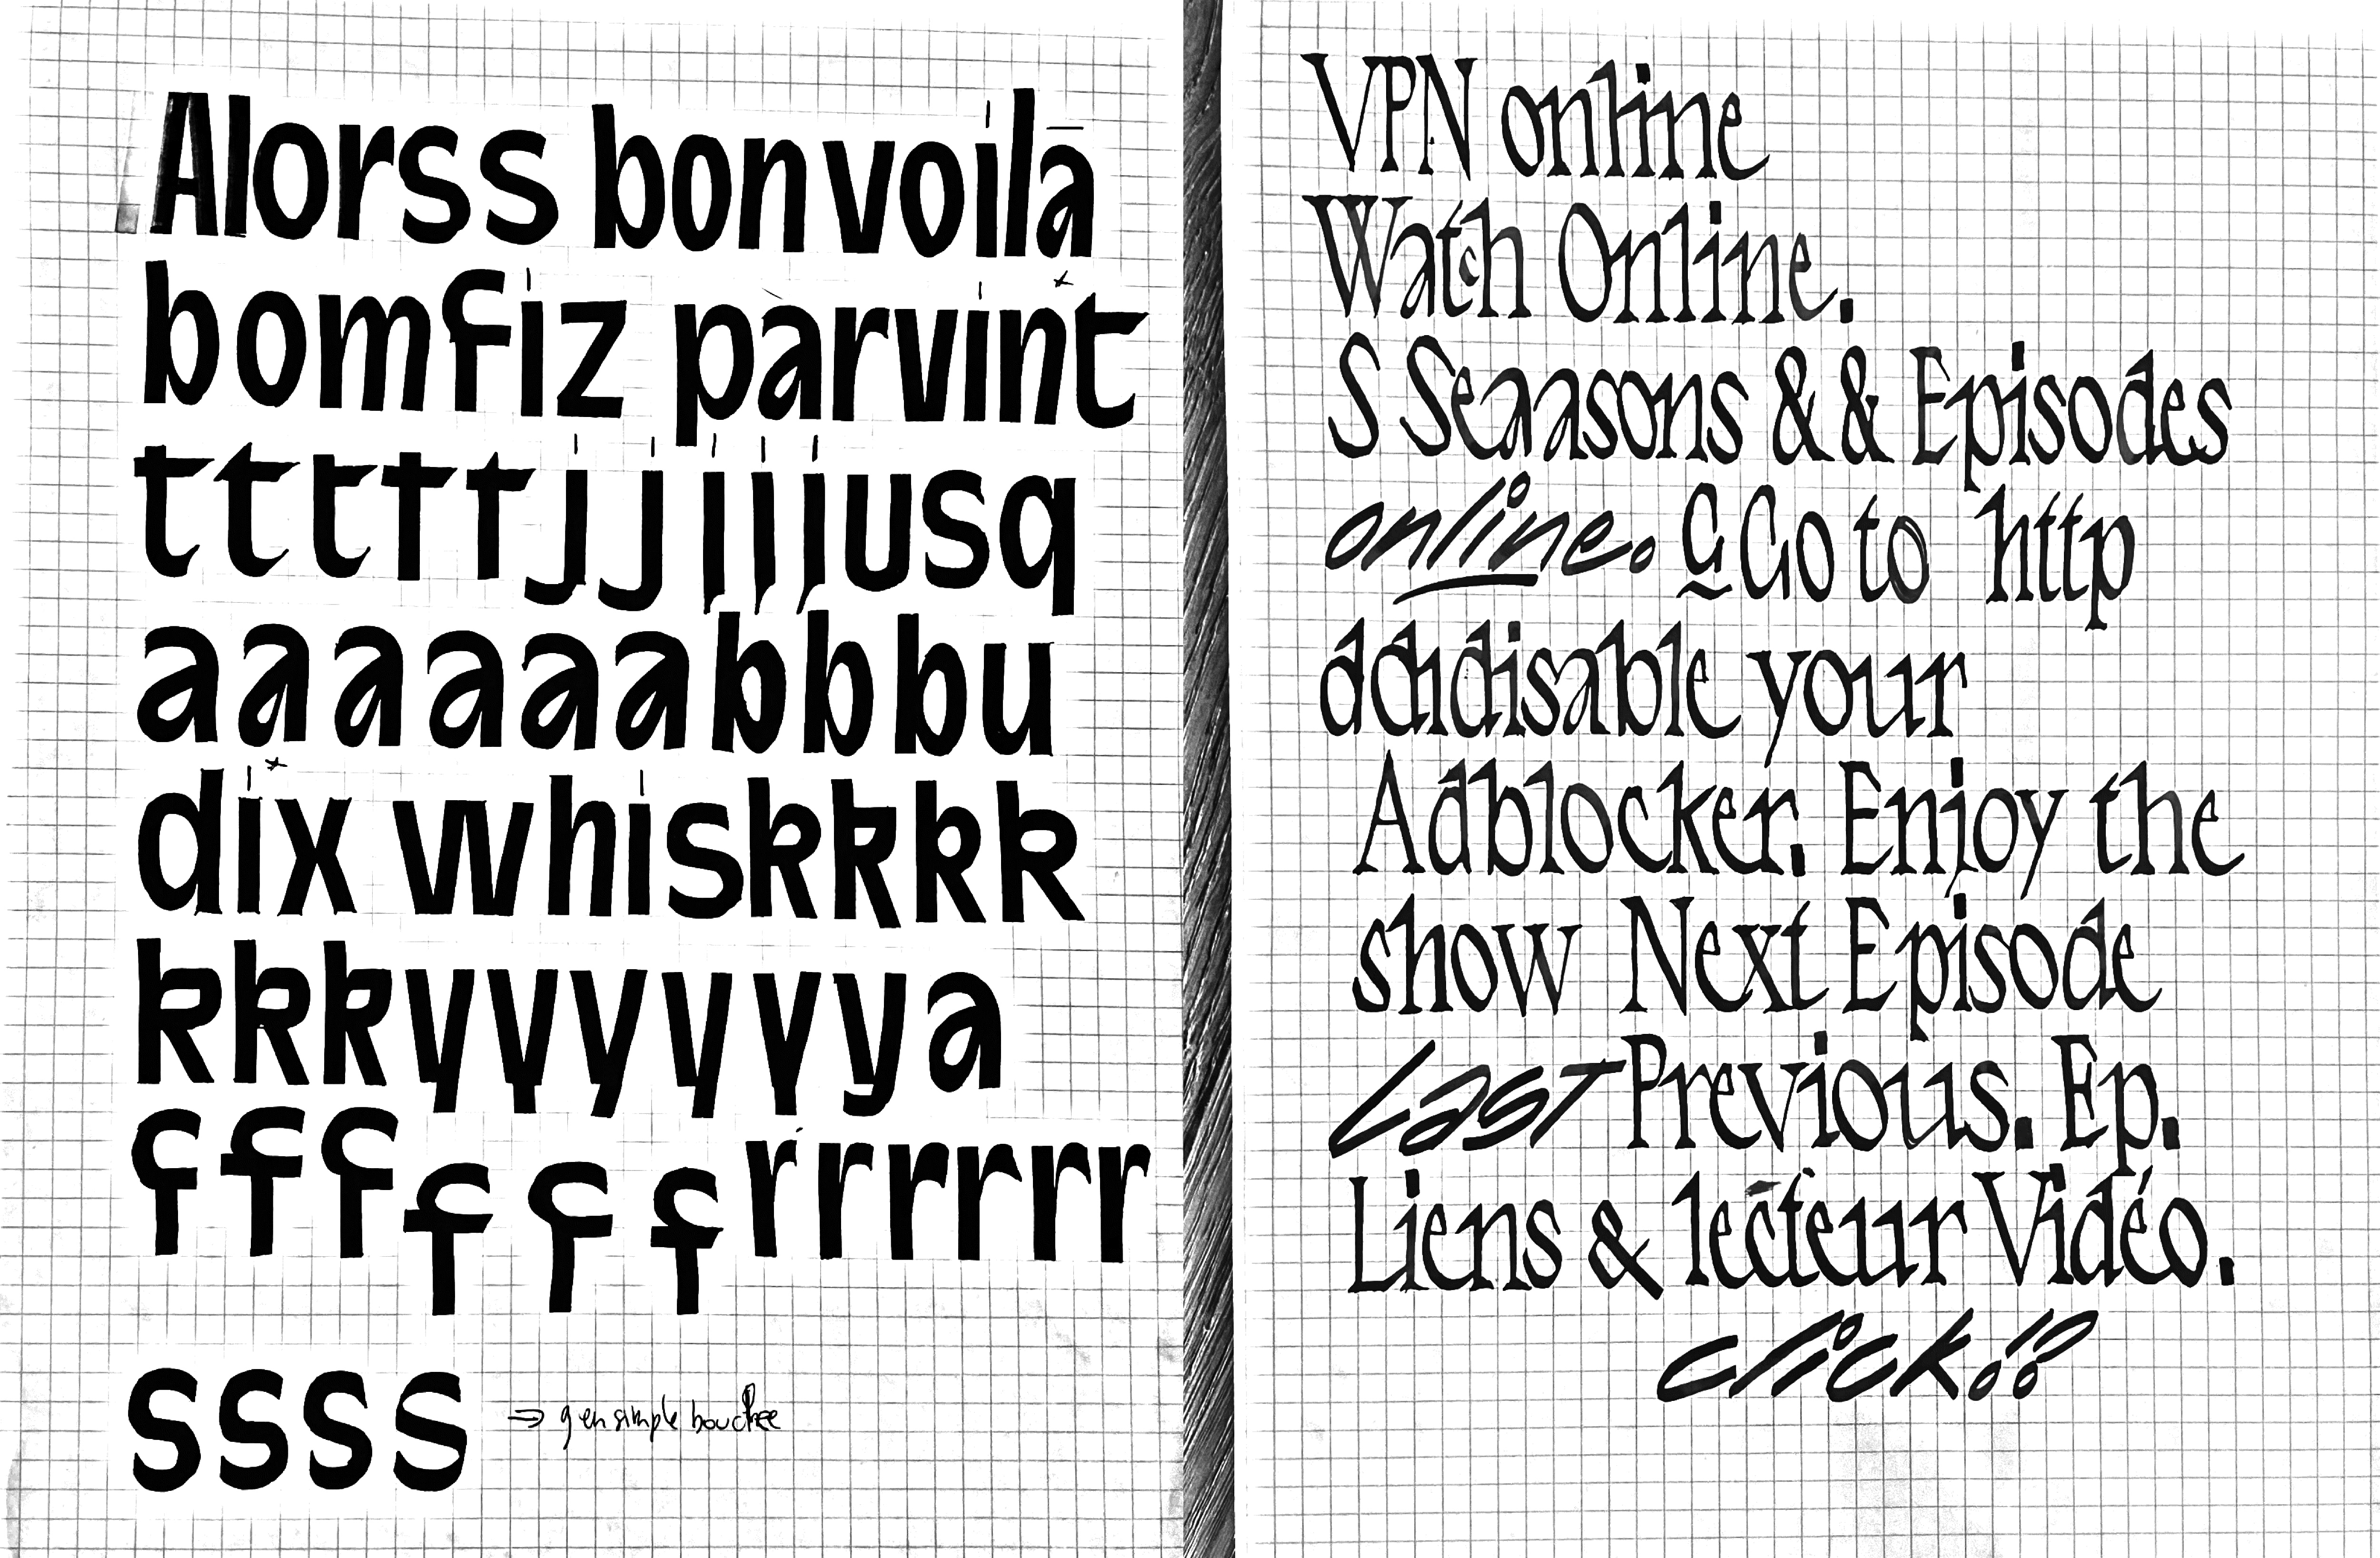 Alorss bon voilà
bomfiz pàrvint
tttttjjjjjusq
aaaaaabbbu
dix whiskkkk
kkkyyyyyya
ffffffrrrrrr
ssss
→ g en simple bouclée
VPN online
Watch Online.
S Seaasons & & Episodes
online. G Go to http
ddidisable your
Adblocker. Enjoy the
show Next Episode
Last Previous. Ep.
Liens & lecteur Vidéo.
click!?